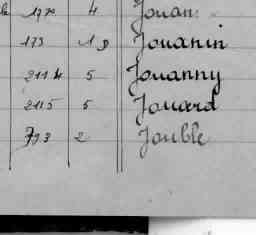 4 Jouan
173 19 Jouanin
2114 5 Jouanny
2115 5 Jouard
793 2 Jouble